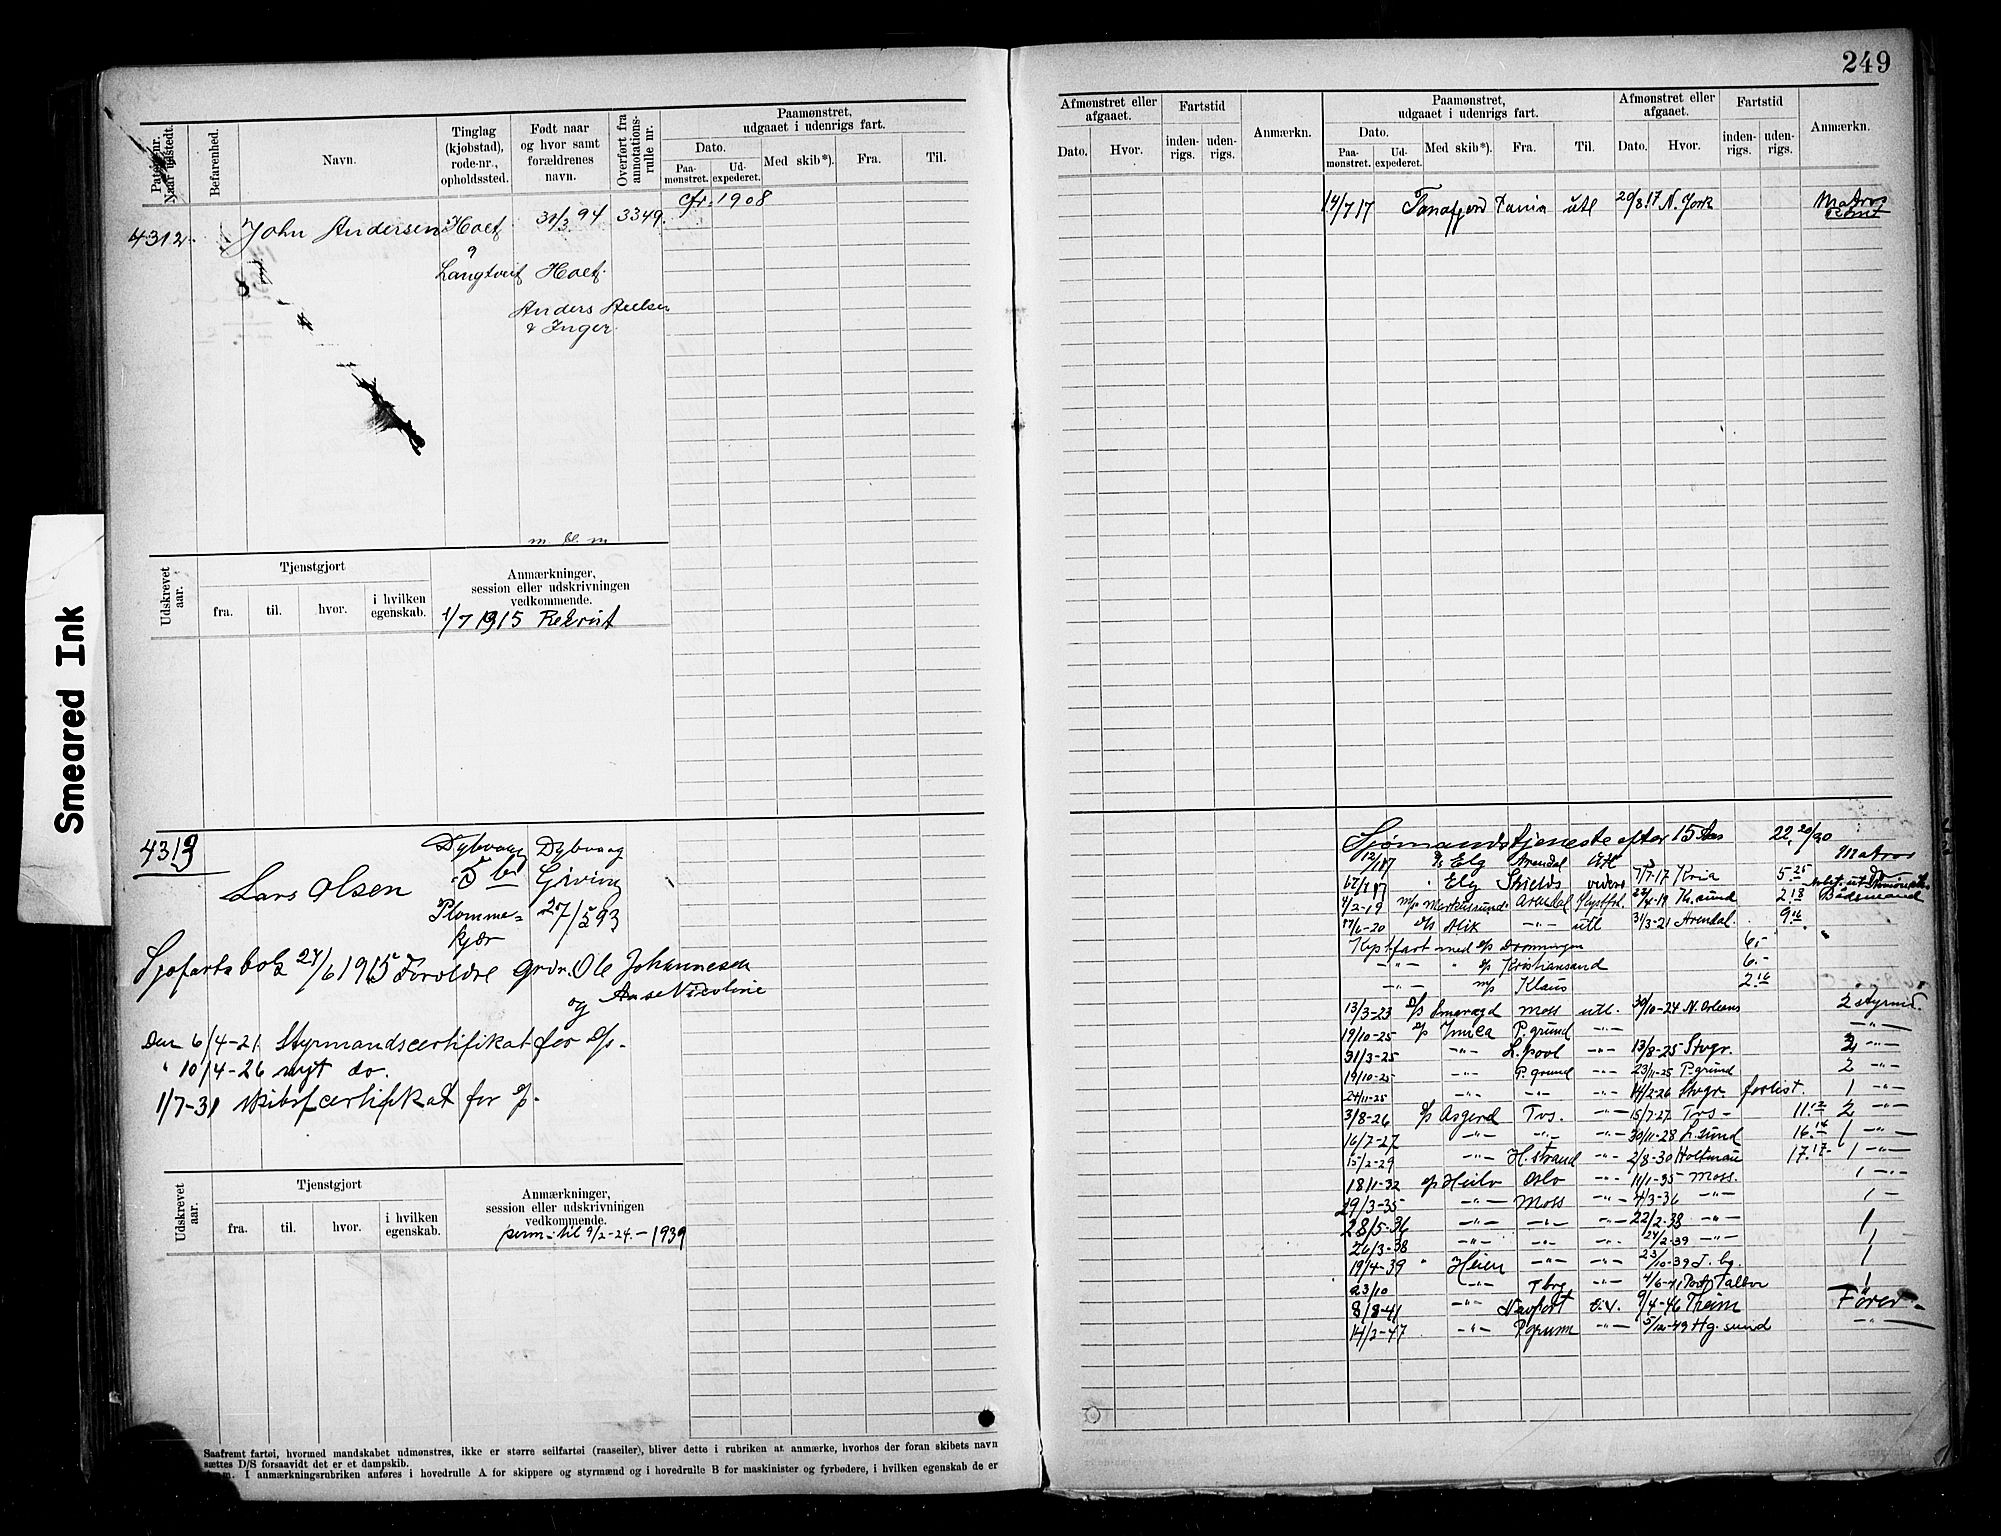 249
Patent-nr. Naar udstedt.
Befarenhed.
Navn.
Tinglag (kjøbstad), rode-nr., opholdssted.
Født naar og hvor samt forældrenes navn.
Overført fra annotations-rulle nr.
Paamønstret, udgaaet i udenrigs fart.
Dato.
Paa-mønstret.
Ud-expederet.
Med skib*).
Fra.
Til.
Afmønstret eller afgaaet.
Dato.
Hvor.
Fartstid
inden-rigs.
uden-rigs.
Anmærkn.
Paamønstret, udgaaet i udenrigs fart.
Dato.
Paa-mønstret.
Ud-expederet.
Med skib*).
Fra.
Til.
Afmønstret eller afgaaet.
Dato.
Hvor.
Fartstid
inden-rigs.
uden-rigs.
Anmærkn.
4312. John Andersen Holt 31/3 94 3349. cfr. 1908
9
Langtveit Holt.
Anders Nielsen
& Inger.
14/7 17 Tanafjord utl 20/8.17 N. York Matros
m. bl. m
Udskrevet aar.
Tjenstgjort
fra.
til.
hvor.
i hvilken egenskab.
Anmærkninger, session eller udskrivningen vedkommende.
1/7 1915 Rekrut
Smeared Ink
4313
Lars Olsen
Dybvaag
Plomme-
kjær
Dybvaag
Giving
27/5 93
Sjøfartsbok 24/6 1915 Foreldre grdr. Ole Johannesen
og Aase Nicoline
Den 6/4-21 Styrmandscertifikat for D/s.
" 10/4-26 nyt do.
1/7-31 skibsf.certifikat for D/s.
Udskrevet aar.
Tjenstgjort
fra.
til.
hvor.
i hvilken egenskab.
Anmærkninger, session eller udskrivningen vedkommende.
perm. til 9/2-24. - 1939
Sjømandstjeneste efter 15 Aar 22 20/30
12/1 17 D/s Elg Arendal Utl Matros
" Elg Shields videre 7/7-17 Kria 5 25
4/2-19 m/s Markussund Arendal Kystf. 22/4-19 Kr.sund 2 18 Bådsmand
17/6-20 D/s Alik -"- utl 31/3-21 Arendal. 9 16
Kystfart med D/s Dronningen 6.-
-"- " D/s Kristiansand 6.-
-"- m/s Klaus 2.16
13/3-23 D/s Smaragd Moss utl. 30/10-24 N. Orleans 2 styrmd.
19/10-25 D/s Imica P.grund -"- -"-
31/3-25 -"- L.pool -"- 13/8-25 Stvgr. 2 -"-
19/10-25 -"- P.grund -"- 23/11-25 P.grund 2 -"-
24/11-25 -"- -"- -"- 14/2-26 Stvgr. forlist. 1 -"-
3/8-26 D/s Asgerd Tvs. -"- 15/7-27 Tvs- 11.12 2 -"-
16/7-27 -"- -"- -"- 30/11-28 L.sund 16.14 1 -"-
15/2-29 -"- H.strand -"- 2/8-30 Holtenau 17.17 1 -"-
18/1-32 D/s Heilo Oslo -"- 11/1-35 - Moss. 1 -"-
29/3-35 -"- Moss -"- 4/3-36 -"- 1 -
28/5-36 -"- -"- -"- 22/2-38 -"- 1
26/3-38 -"- -"- -"- 24/2-39 -"- 1
19/4-39 " Heien -"- -"- 23/10-39 T.bg. 1
23/10 -"- Tbg -"- 4/6-41 Port Talbot 1
8/8-41 -"- Newport 9/4-46 Th.eim Fører -
14/2-47 -"- P.grunn -"- 5/12-49 Hg.sund -"-
Saafremt fartøi, hvormed mandskabet udmønstres, ikke er større seilfartøi (raaseiler), bliver dette i rubriken at anmærke, hvorhos der foran skibets navn
sættes D/S forsaavidt det er et dampskib.
I anmærkningsrubriken anføres i hovedrulle A for skippere og styrmænd og i hovedrulle B for maskinister og fyrbødere, i hvilken egenskab de er